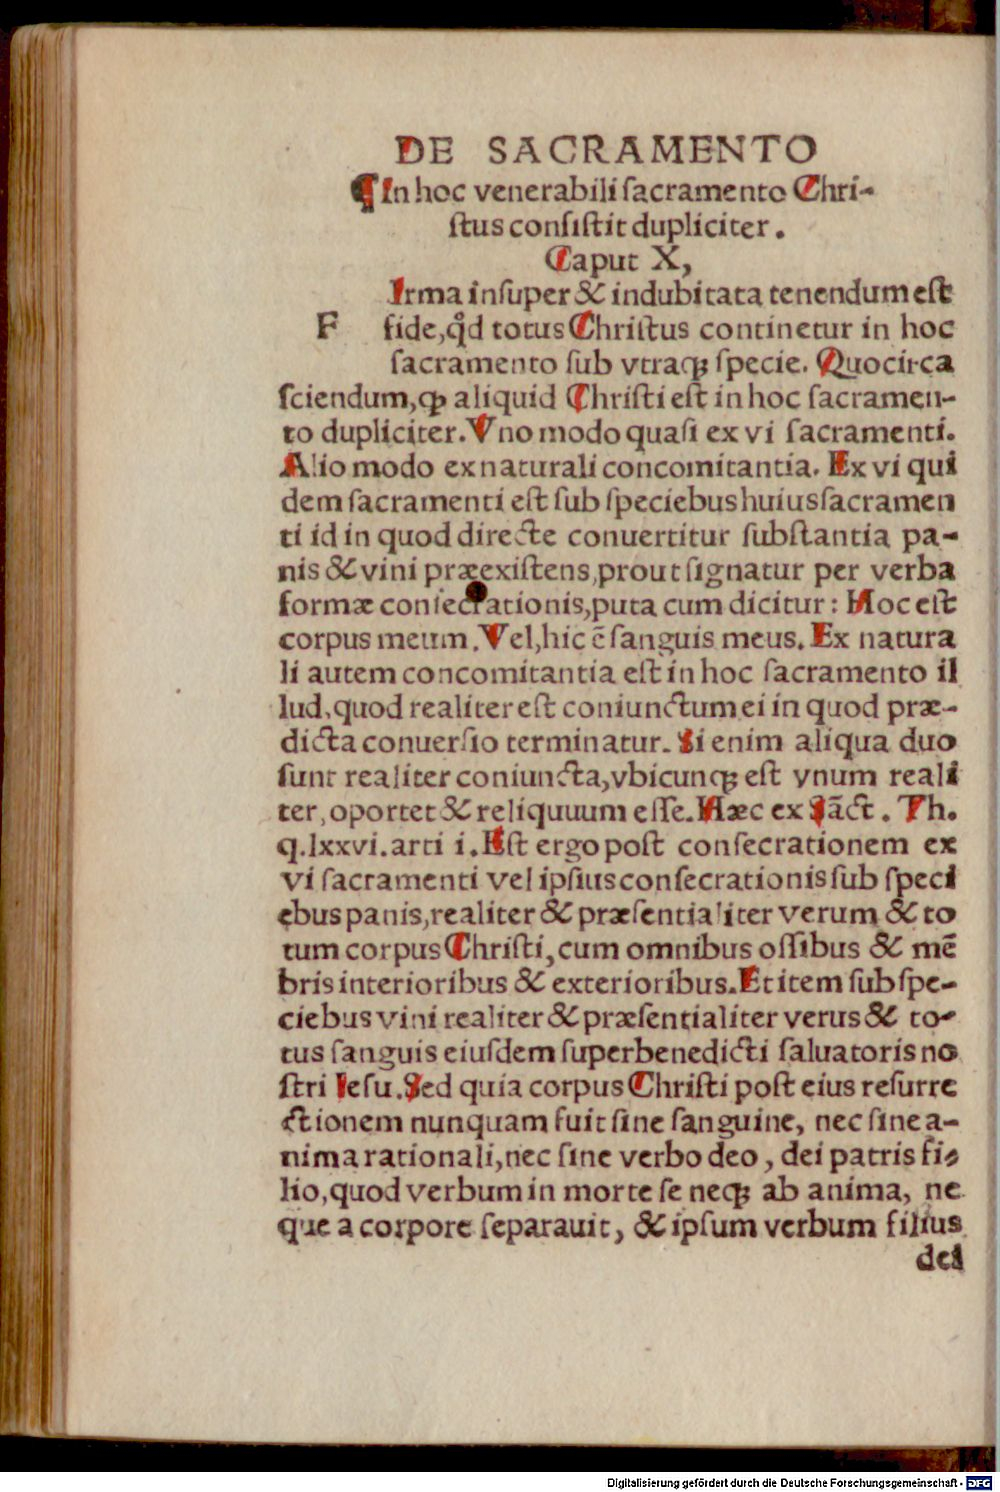 DE SACRAMENTO
¶In hoc venerabili sacramento Chri-
stus consistit dupliciter.
Caput X,
Irma insuper & indubitata tenendum est
F fide, qd̊ totus Christus continetur in hoc
sacramento sub vtraqꝫ specie. Quocirca
sciendum, ꝙ aliquid Christi est in hoc sacramen-
to dupliciter. Vno modo quasi ex vi sacramenti.
Alio modo ex naturali concomitantia. Ex vi qui
dem sacramenti est sub speciebus huius sacramen
ti id in quod directe conuertitur substantia pa-
nis & vini præexistens, prout signatur per verba
formæ consecrationis, puta cum dicitur: Hoc est
corpus meum. Vel, hic ē sanguis meus. Ex natura
li autem concomitantia est in hoc sacramento il
lud, quod realiter est coniunctum ei in quod præ-
dicta conuersio terminatur. Si enim aliqua duo
sunt realiter coniuncta, vbicunqꝫ est vnum reali
ter, oportet & reliquuum esse. Hæc ex Sāct. Th.
q.lxxvi. arti i. Est ergo post consecrationem ex
vi sacramenti vel ipsius consecrationis sub speci
ebus panis, realiter & præsentialiter verum & to
tum corpus Christi, cum omnibus ossibus & mē
bris interioribus & exterioribus. Et item sub spe-
ciebus vini realiter & præsentialiter verus & to-
tus sanguis eiusdem superbenedicti saluatoris no
stri Iesu. Sed quia corpus Christi post eius resurre
ctionem nunquam fuit sine sanguine, nec sine a-
nima rationali, nec sine verbo deo, dei patris fi-
lio, quod verbum in morte se neqꝫ ab anima, ne
que a corpore separauit, & ipsum verbum filius
dei
Digitalisierung gefördert durch die Deutsche Forschungsgemeinschaft - DFG